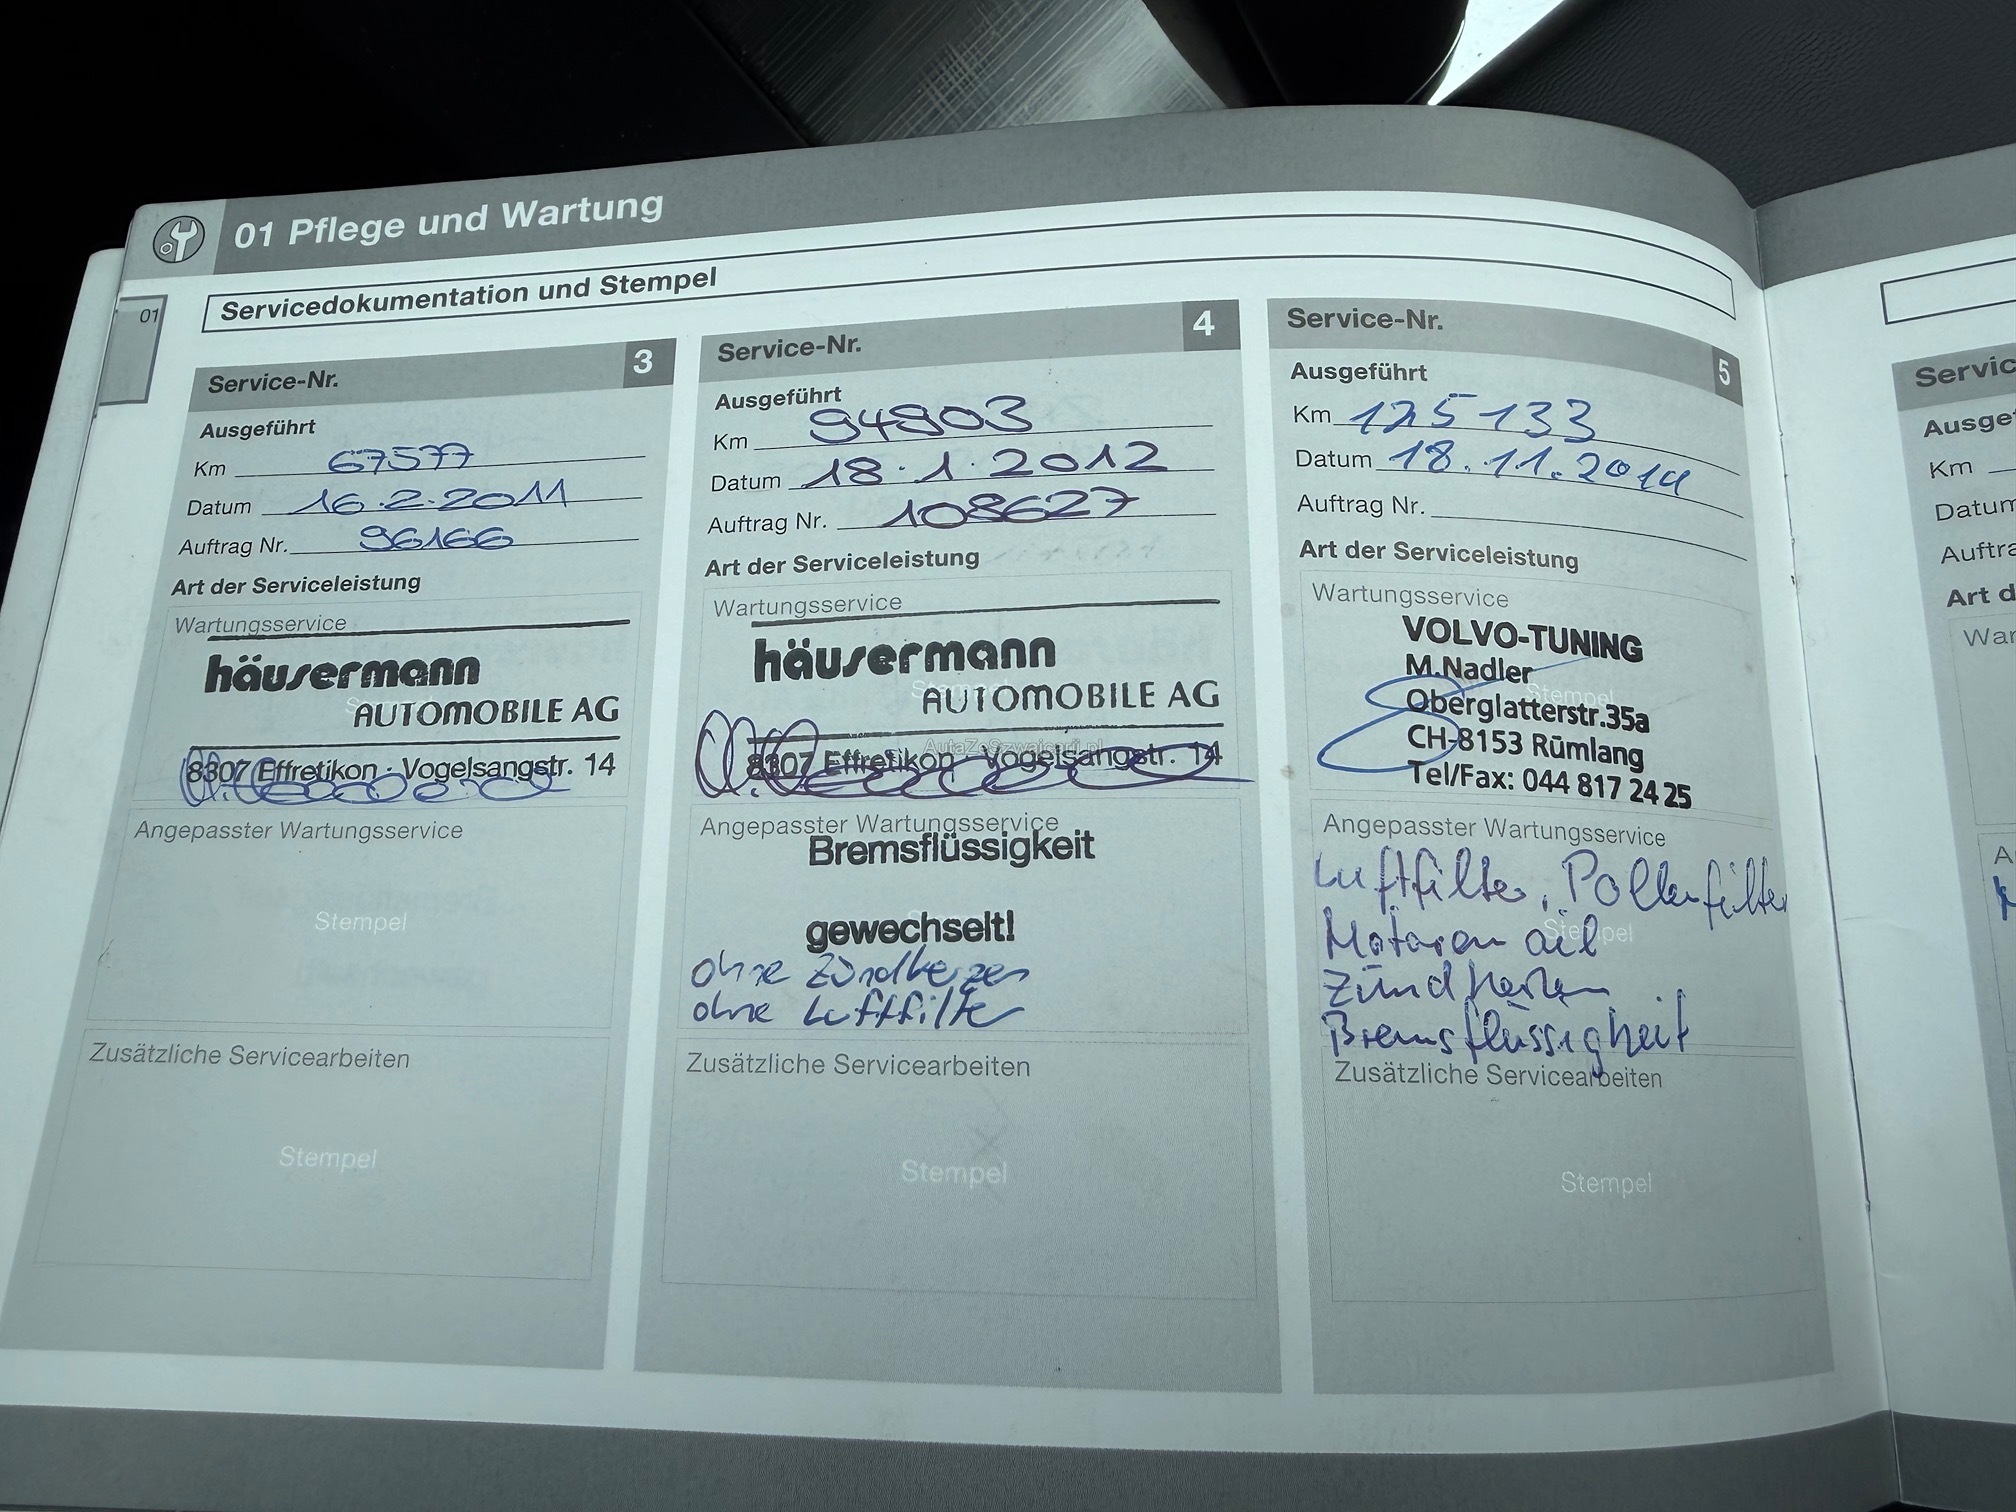 01 Pflege und Wartung
01
Servicedokumentation und Stempel
Service-Nr. 3
Ausgeführt
Km 67577
Datum 16.2.2011
Auftrag Nr. 96166
Art der Serviceleistung
Wartungsservice
häusermann
AUTOMOBILE AG
8307 Effretikon · Vogelsangstr. 14
Angepasster Wartungsservice
Stempel
Zusätzliche Servicearbeiten
Stempel
Service-Nr. 4
Ausgeführt
Km 94903
Datum 18.1.2012
Auftrag Nr. 108627
Art der Serviceleistung
Wartungsservice
häusermann
AUTOMOBILE AG
AutaZeSzwajcarii.pl
8307 Effretikon · Vogelsangstr. 14
Angepasster Wartungsservice
Bremsflüssigkeit
gewechselt!
ohne Zündkerzen
ohne Luftfilter
Zusätzliche Servicearbeiten
Stempel
Service-Nr. 5
Ausgeführt
Km 125133
Datum 18.11.2014
Auftrag Nr.
Art der Serviceleistung
Wartungsservice
VOLVO-TUNING
M.Nadler
Stempel
Oberglatterstr.35a
CH-8153 Rümlang
Tel/Fax: 044 817 24 25
Angepasster Wartungsservice
Luftfilter, Pollenfilter
Motoren oil
Stempel
Zündkerzen
Bremsflüssigkeit
Zusätzliche Servicearbeiten
Stempel
Servic
Ausgef
Km
Datum
Auftra
Art d
War